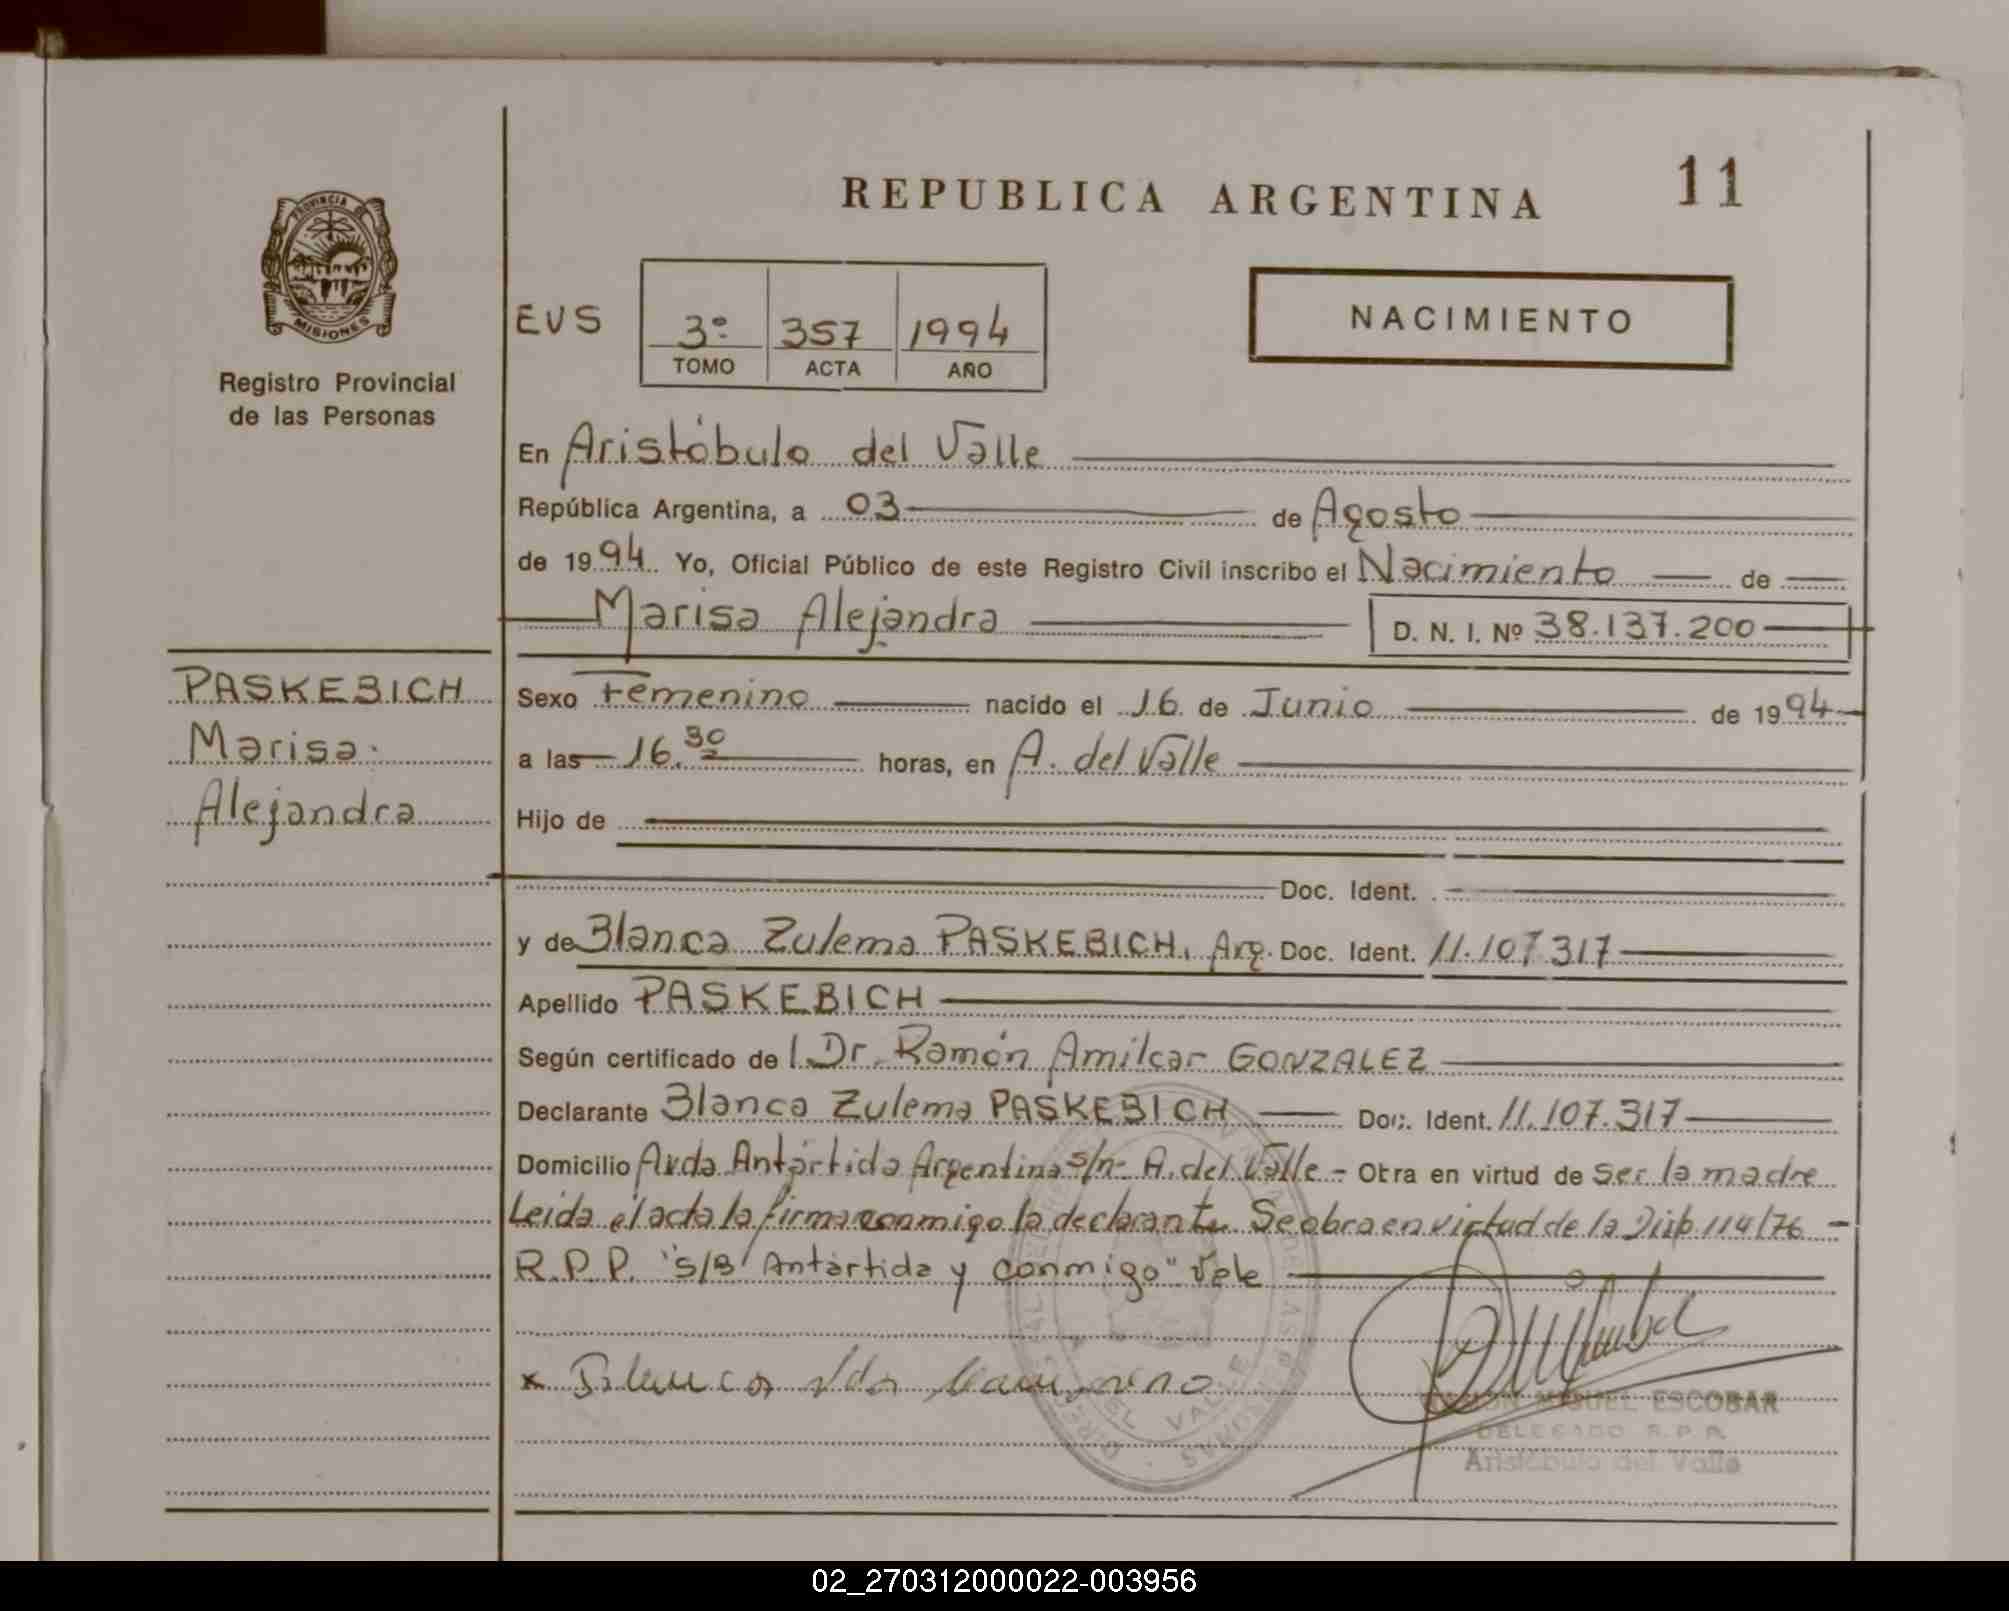 REPUBLICA ARGENTINA
11
PROVINCIA DE
MISIONES
Registro Provincial
de las Personas
EVS
3º 357 1994
TOMO ACTA AÑO
NACIMIENTO
En Aristóbulo del Valle
República Argentina, a 03 de Agosto
de 1994. Yo, Oficial Público de este Registro Civil inscribo el Nacimiento de
Marisa Alejandra D. N. I. Nº 38.137.200
PASKEBICH
Marisa
Alejandra
Sexo Femenino nacido el 16 de Junio de 1994
a las 16.30 horas, en A. del Valle
Hijo de
Doc. Ident.
y de Blanca Zulema PASKEBICH, Arg. Doc. Ident. 11.107.317
Apellido PASKEBICH
Según certificado del Dr. Ramón Amilcar GONZALEZ
Declarante Blanca Zulema PASKEBICH Doc. Ident. 11.107.317
Domicilio Avda Antártida Argentina s/n- A. del Valle - Obra en virtud de Ser la madre
Leida el acta la firma conmigo la declarante. Se obra en virtud de la Disp. 114/76 -
R.P.P. "S/B" Antártida y conmigo" Vale
DEL VALLE
MIGUEL ESCOBAR
DELEGADO R.P.P.
Aristóbulo del Valle
02_270312000022-003956